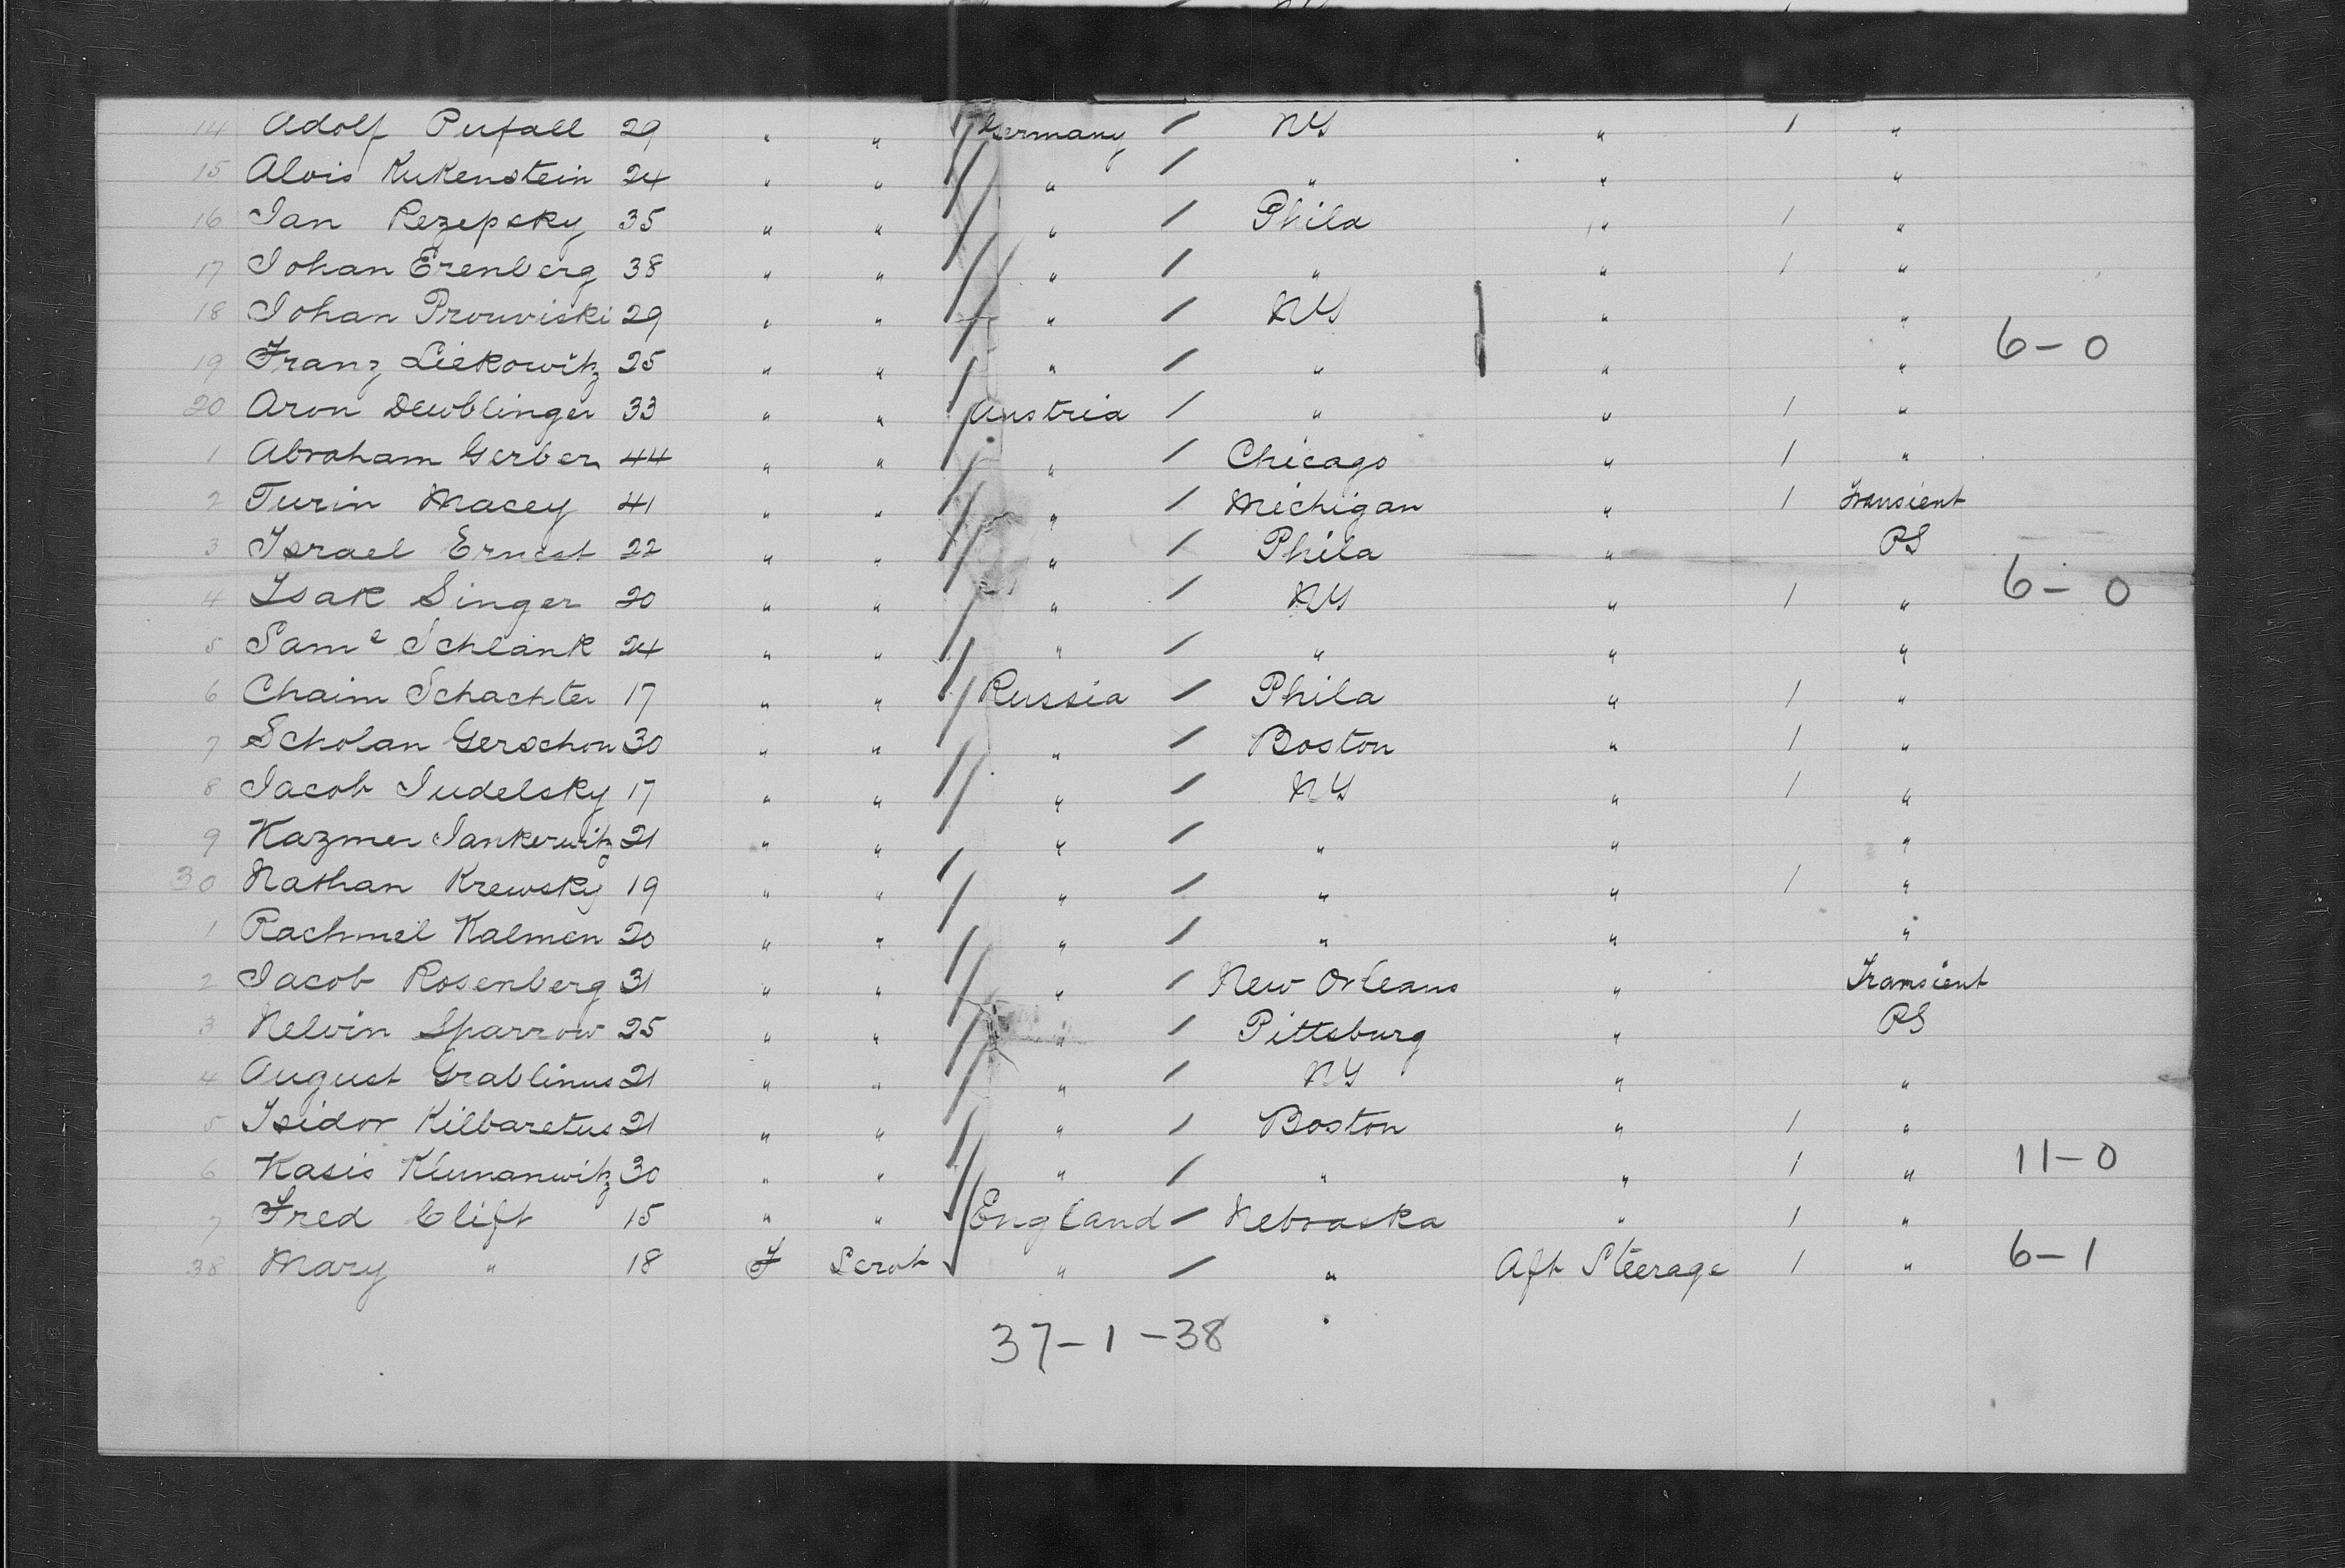 14 Adolf Pufall 29 " " Germany / NY " 1 "
15 Alois Kukenstein 24 " " " / " " "
16 Jan Rezepsky 35 " " " / Phila " 1 "
17 Johan Erenberg 38 " " " / " " 1 "
18 Johan Prouviski 29 " " " / NY " "
19 Franz Liekowitz 25 " " " / " " " 6-0
20 Aron Dewblinger 33 " " Austria / " " 1 "
1 Abraham Gerber 44 " " " / Chicago " 1 "
2 Turin Macey 41 " " " / Michigan " 1 Transient
3 Israel Ernest 22 " " " / Phila " PS
4 Isak Singer 20 " " " / NY " 1 " 6-0
5 Saml Schlank 24 " " " / " " "
6 Chaim Schachter 17 " " Russia / Phila " 1 "
7 Scholan Gerschon 30 " " " / Boston " 1 "
8 Jacob Judelsky 17 " " " / NY " 1 "
9 Kazmer Jankerwitz 21 " " " / " " "
30 Nathan Krewsky 19 " " " / " " 1 "
1 Rachmel Kalmen 20 " " " / " " "
2 Jacob Rosenberg 31 " " " / New Orleans " Transient
3 Nelvin Sparrow 25 " " " / Pittsburg " PS
4 August Grablinus 21 " " " / NY " "
5 Isidor Kilbaretus 21 " " " / Boston " 1 "
6 Kasis Klimanwitz 30 " " " / " " 1 " 11-0
7 Fred Clift 15 " " England / Nebraska " 1 "
38 Mary " 18 F Servt " / " Aft Steerage 1 " 6-1
37-1-38